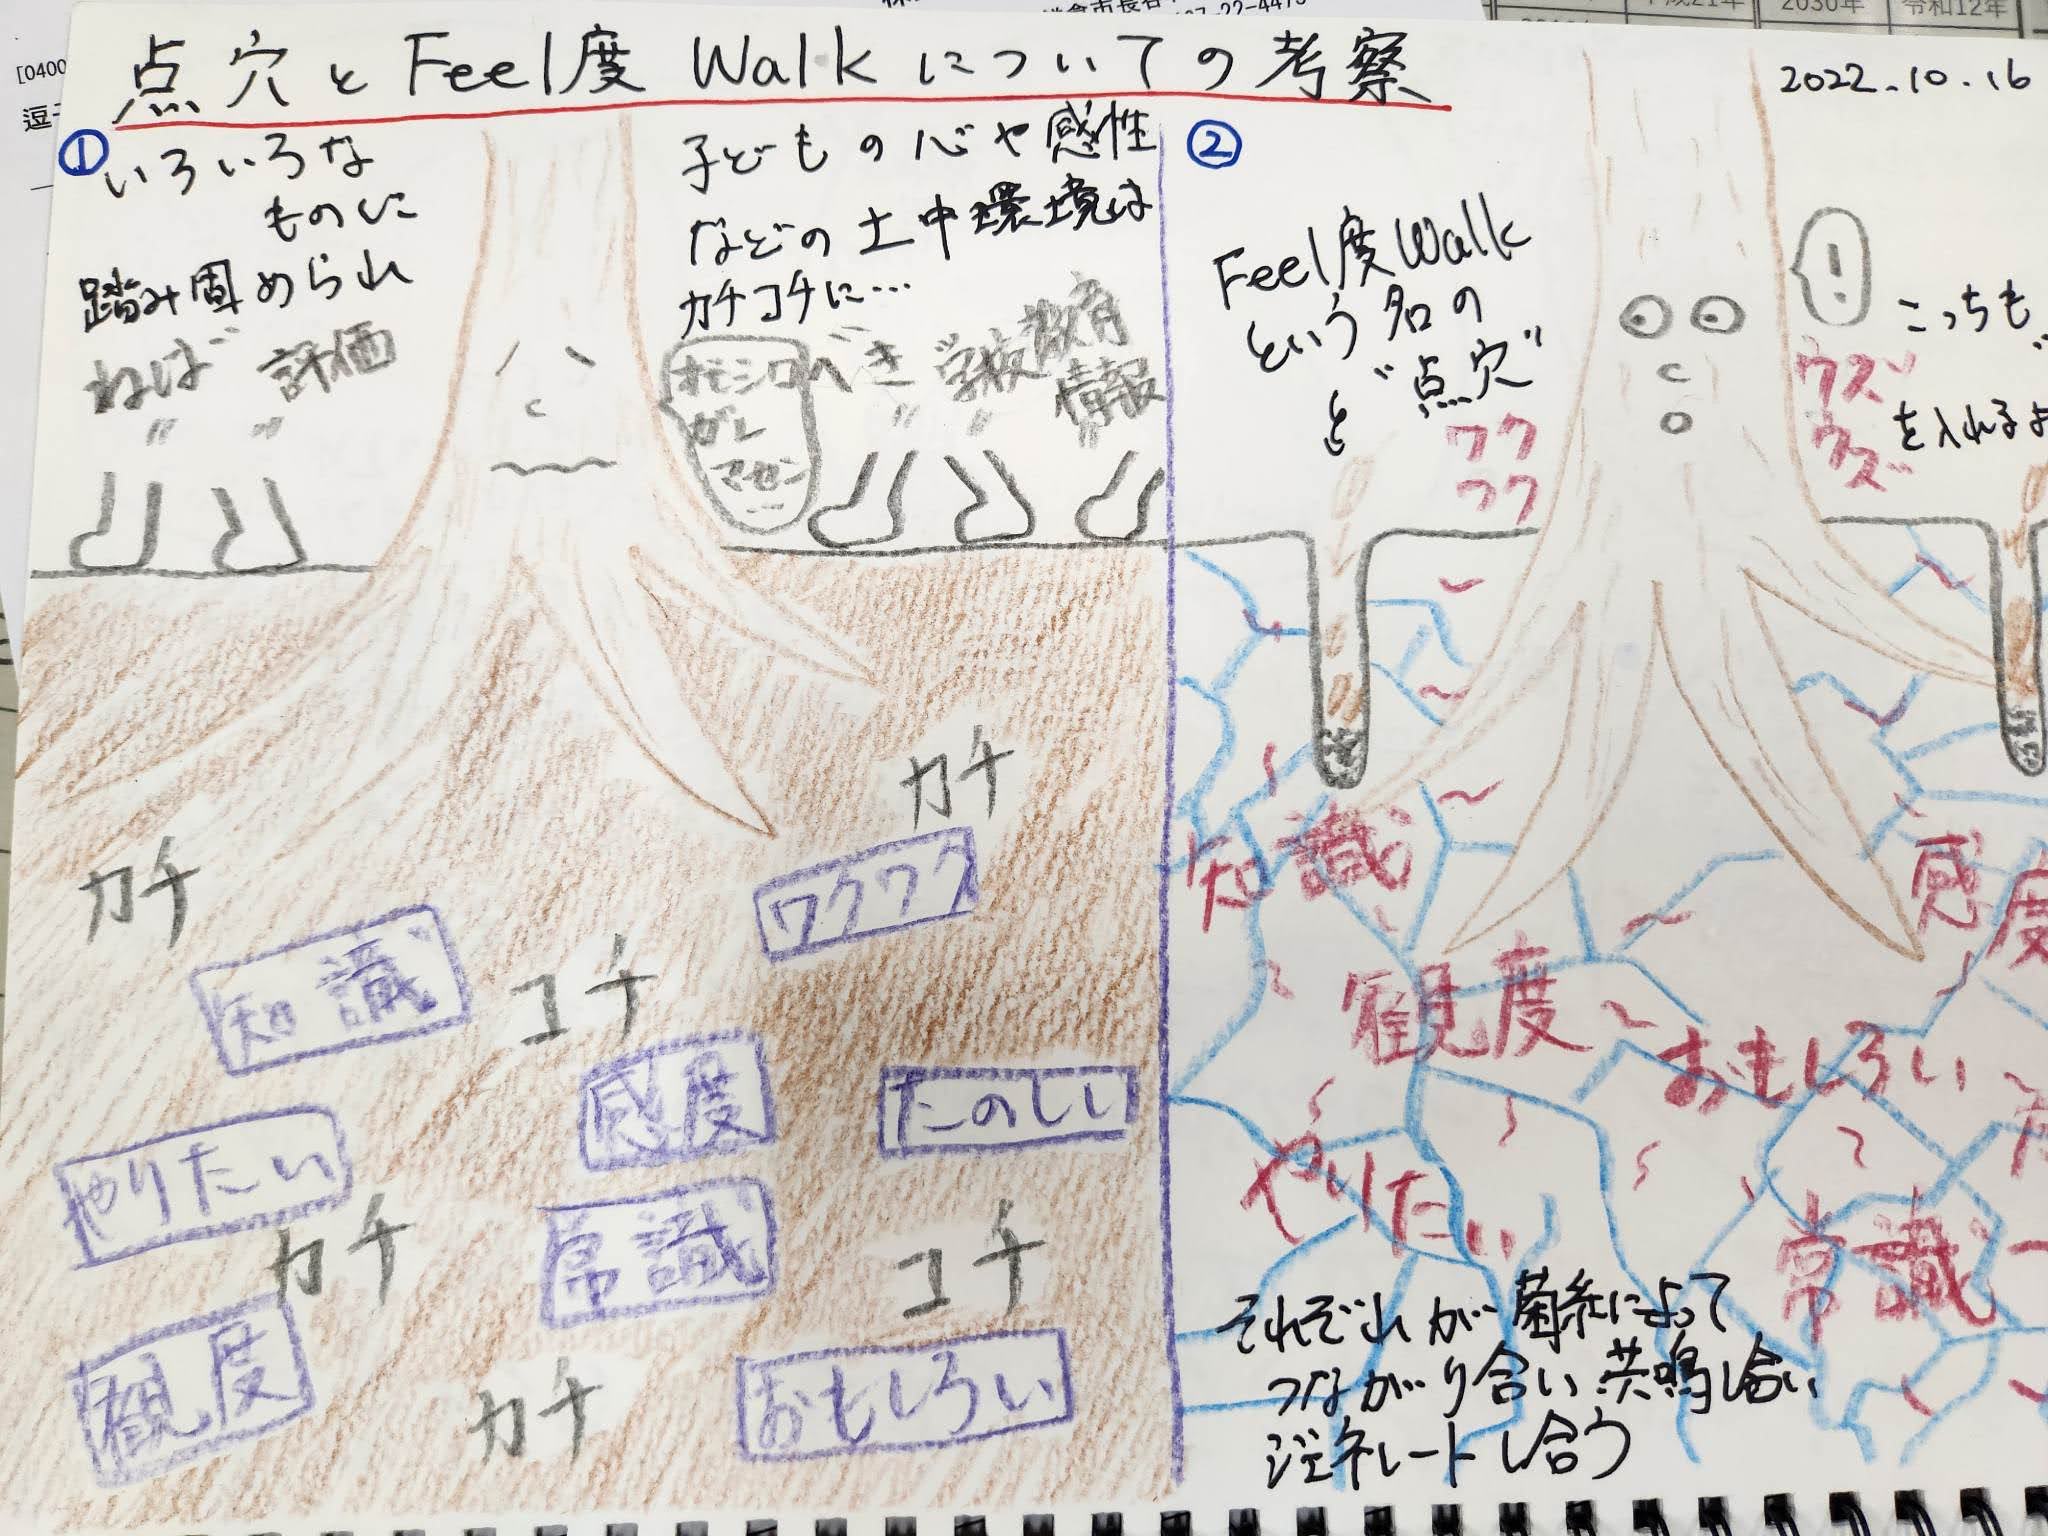 点穴とFeel度Walkについての考察
2022.10.16
①
いろいろな
ものに
踏み固められ
ねば 評価
〃 〃
子どもの心や感性
などの土中環境は
カチコチに…
オモシロ
ガレ
マセン
べき 学校教育
情報
〃 〃 〃
カチ
カチ
ワクワク
知識
コチ
感度
たのしい
やりたい
カチ
常識
コチ
観度
カチ
おもしろい
②
Feel度Walk
という名の
"点穴"
と
ワク
ワク
!
こっちも
ウズ
ウズ
を入れるよ
知識
感度
観度
おもしろい
やりたい
常識
それぞれが菌糸によって
つながり合い共鳴し合い
ジェネレートし合う
[0400
逗子
平成21年
2030年
令和12年